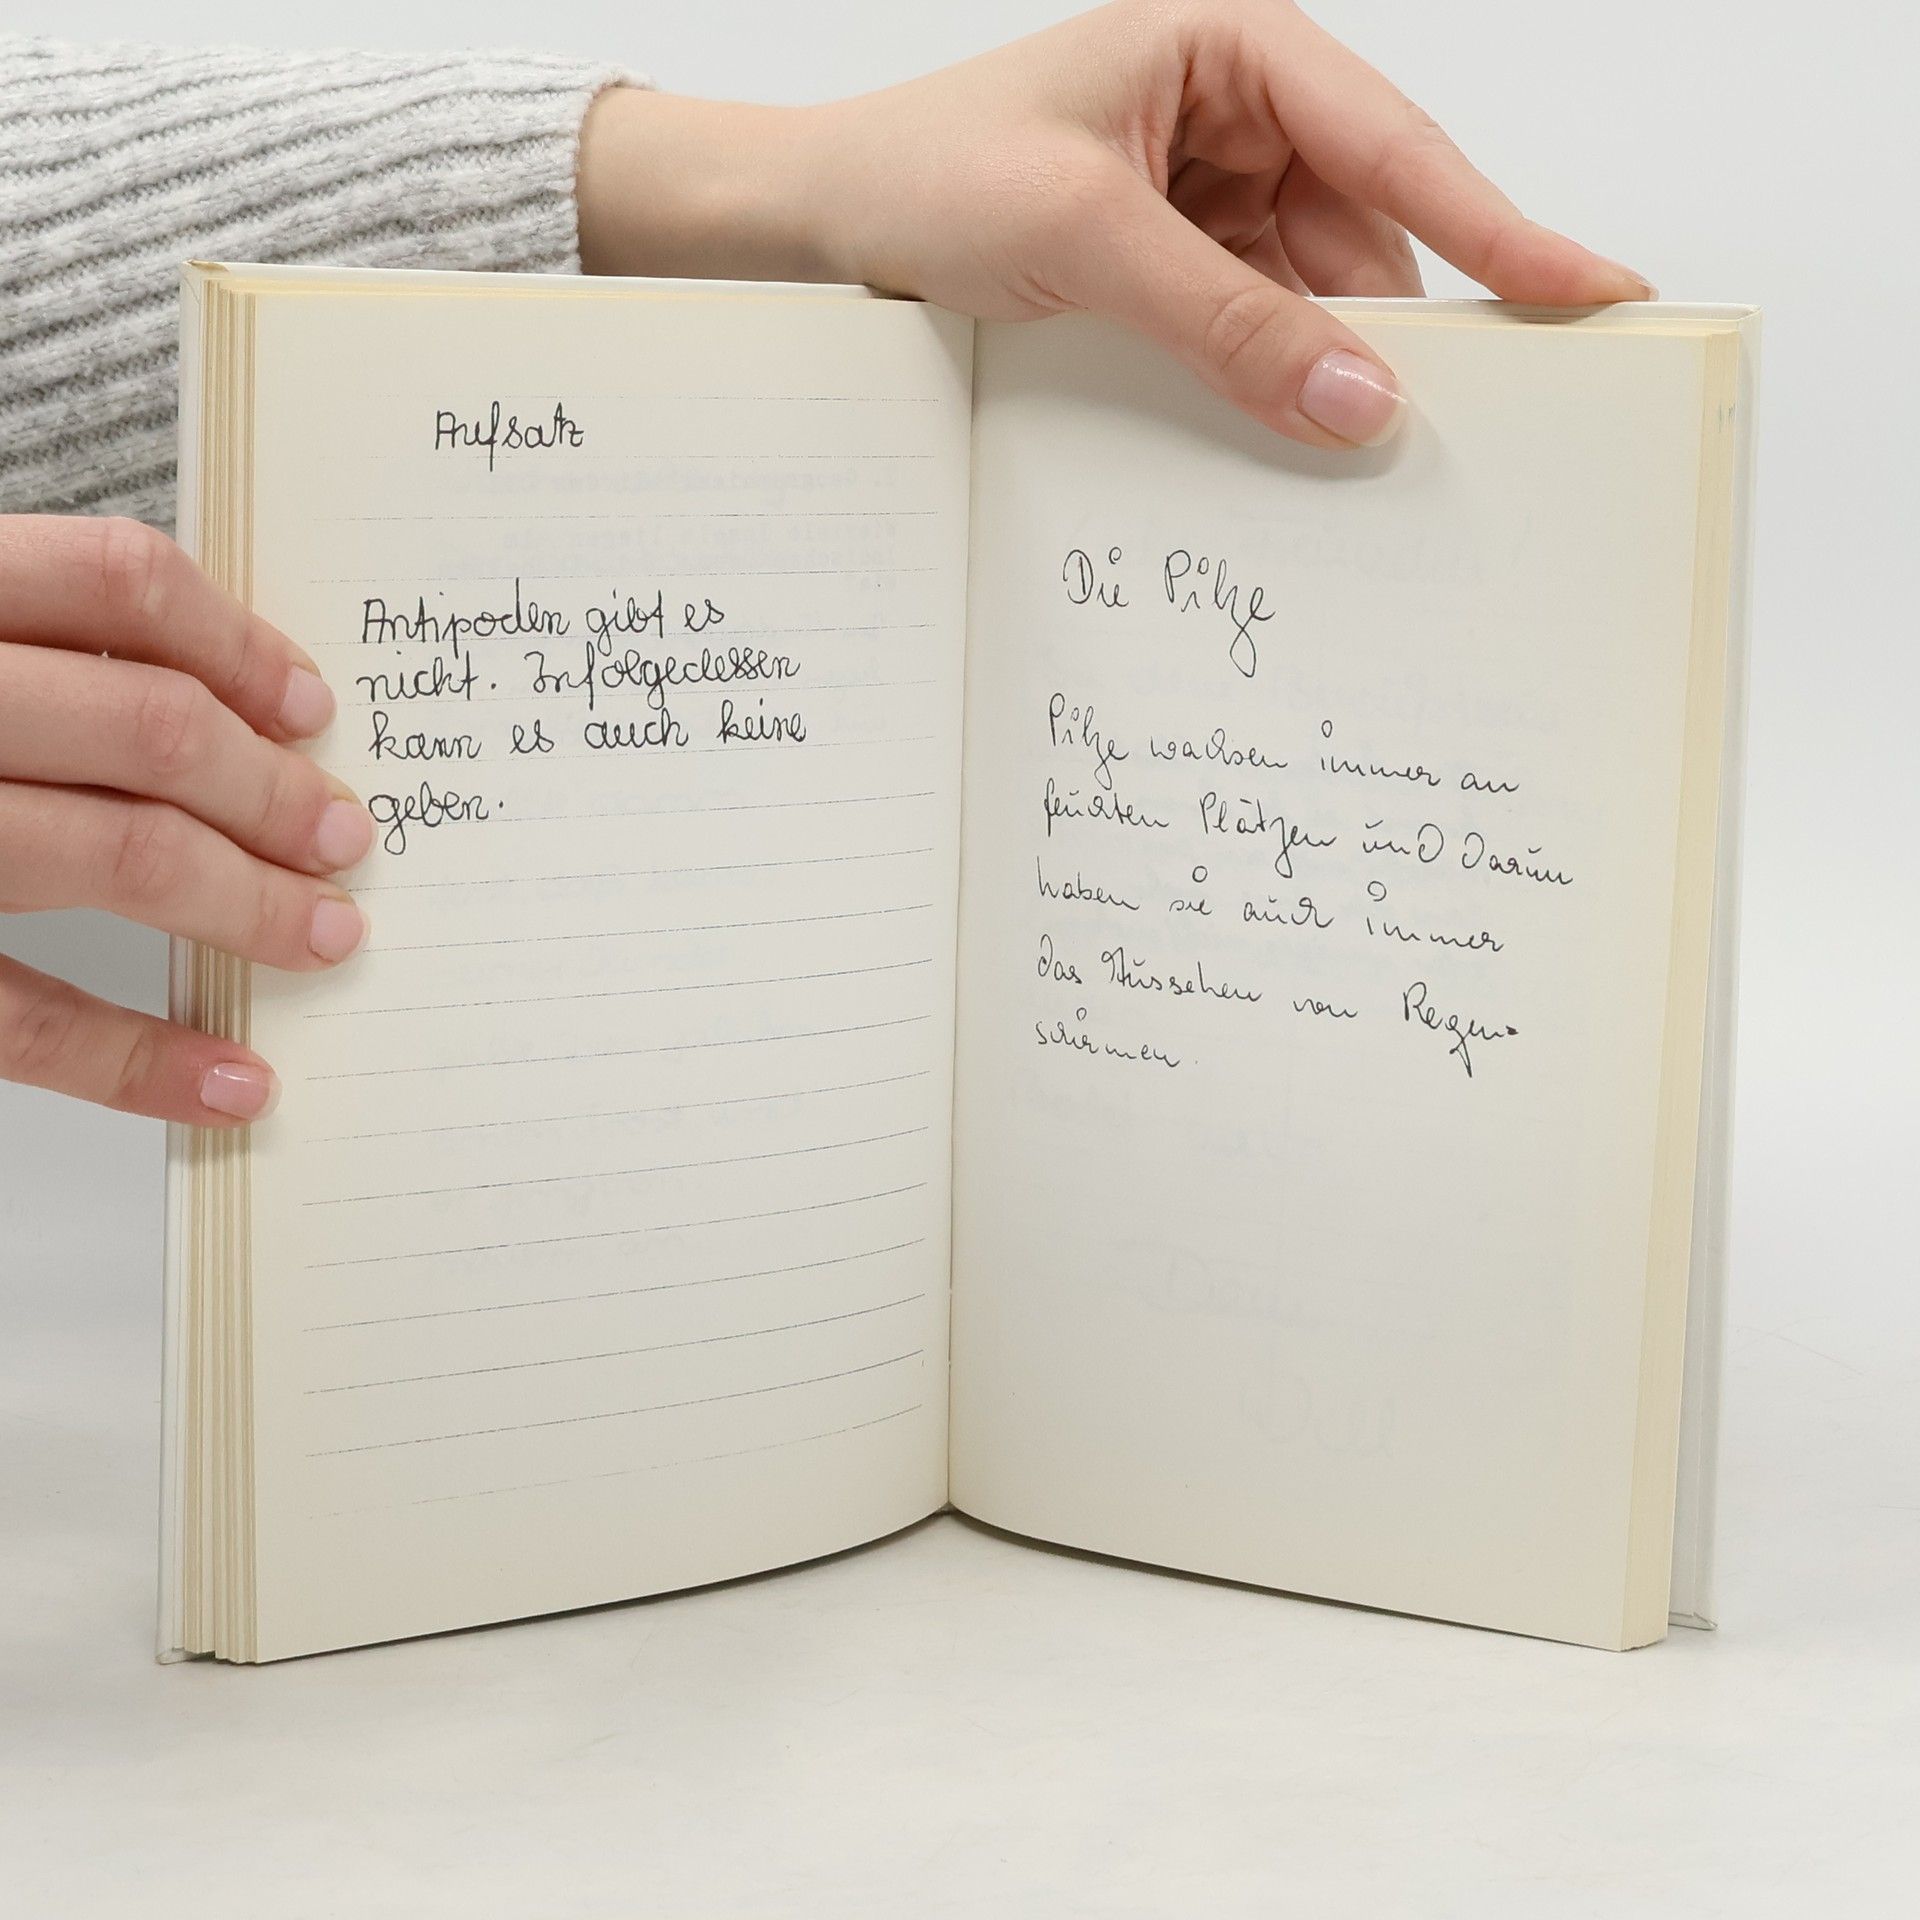 Aufsatz
Antipoden gibt es
nicht. Infolgedessen
kann es auch keine
geben.
Die Pilze
Pilze wachsen immer an
feuchten Plätzen und darum
haben sie auch immer
das Aussehen von Regen=
schirmen.